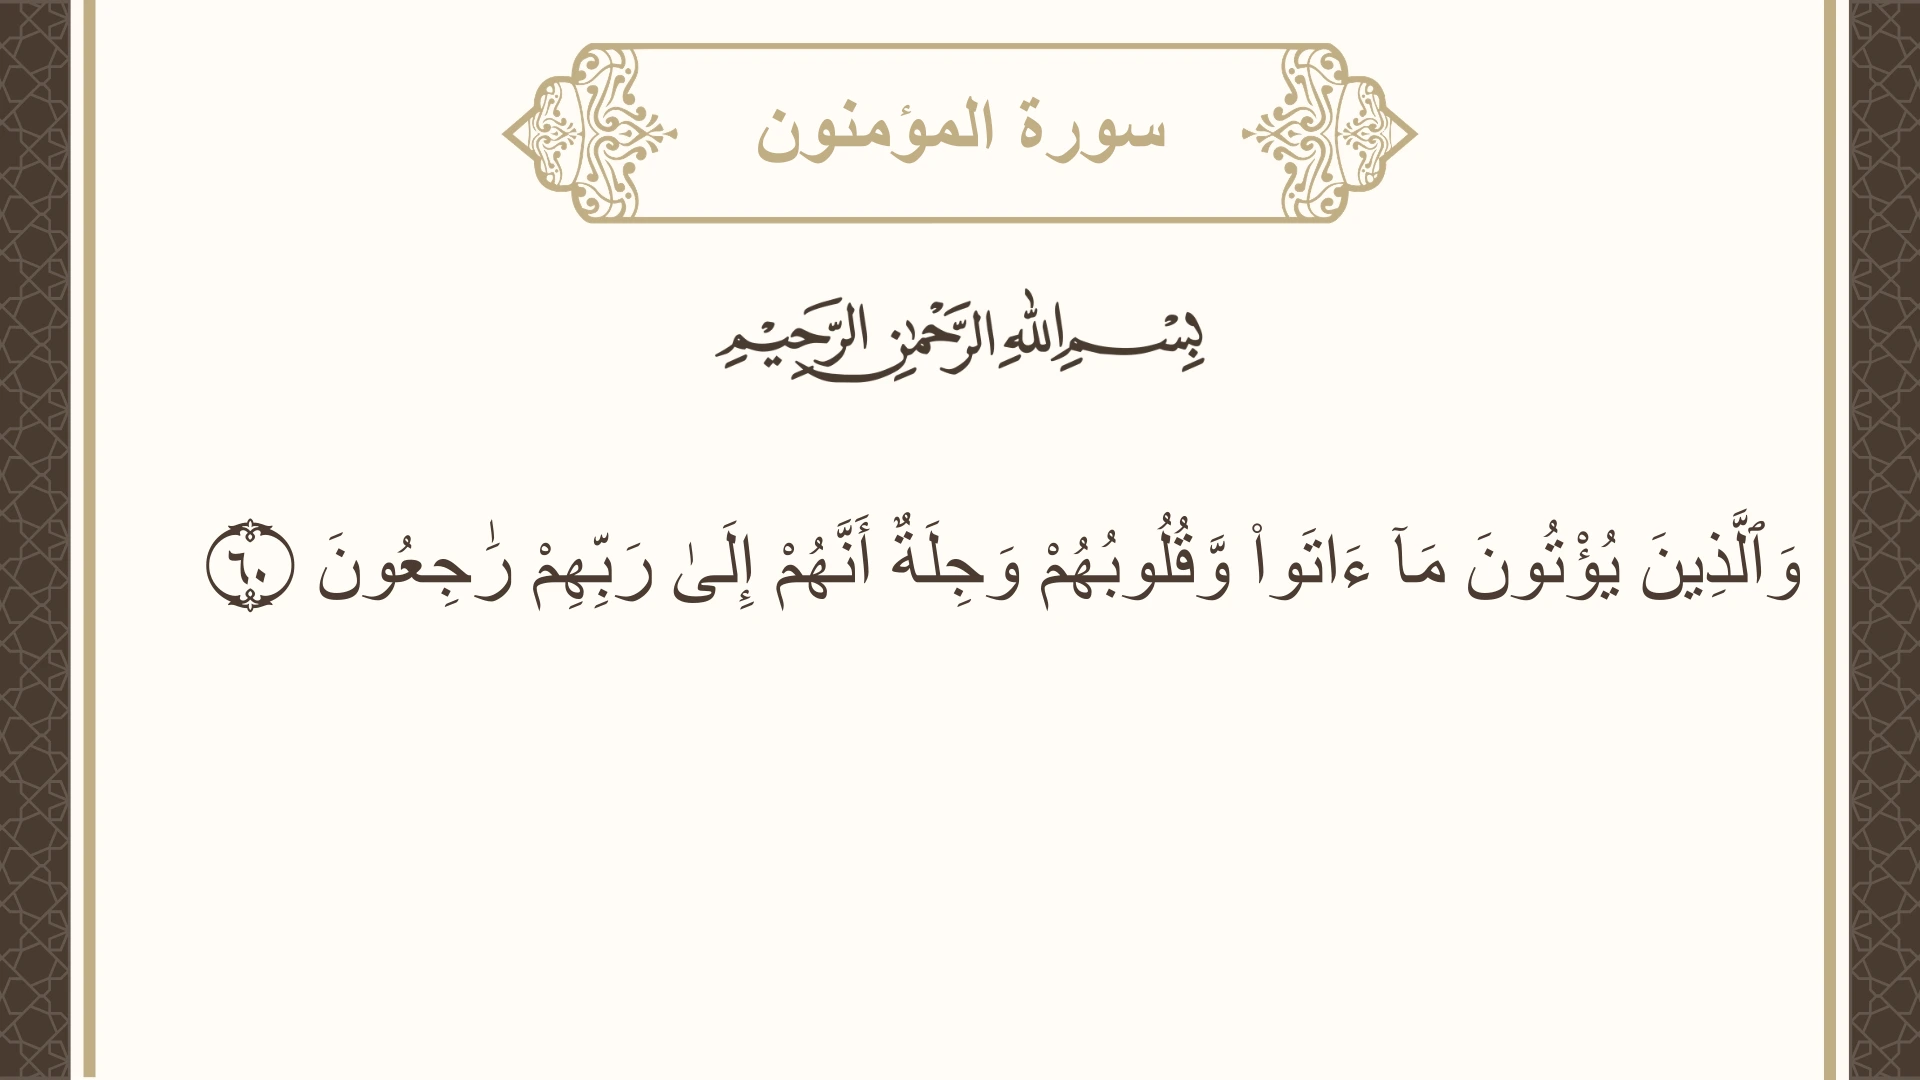 سورة المؤمنون
بِسْمِ اللهِ الرَّحْمٰنِ الرَّحِيْمِ
وَٱلَّذِينَ يُؤْتُونَ مَآ ءَاتَوا۟ وَّقُلُوبُهُمْ وَجِلَةٌ أَنَّهُمْ إِلَىٰ رَبِّهِمْ رَٰجِعُونَ ٦٠